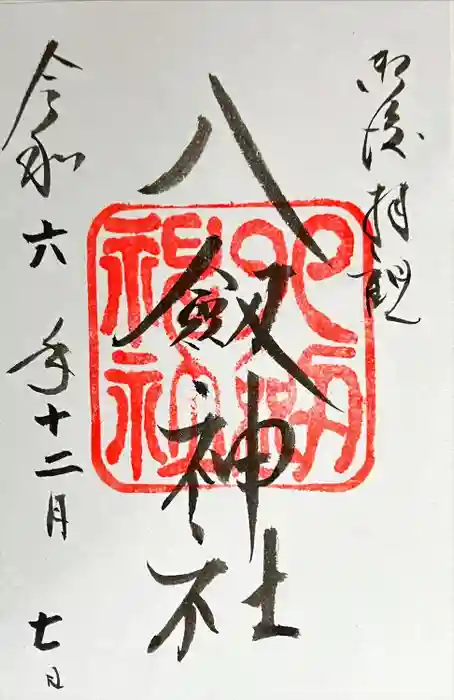 御渡拝観
八剱神社
八剱
神社
令和六年十二月七日